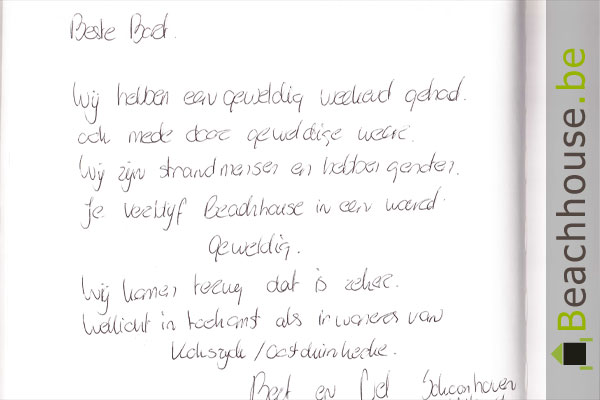 Beste Boet.
Wij hebben een geweldig weekend gehad.
ook mede door geweldige weer.
Wij zijn strandmensen en hebben genoten.
Je verblijf Beachhouse in een woord
geweldig.
Wij komen terug dat is zeker.
Wellicht in toekomst als inwoners van
Koksyde / Oostduinkerke.
Bert en Schoonhoven
Beachhouse.be